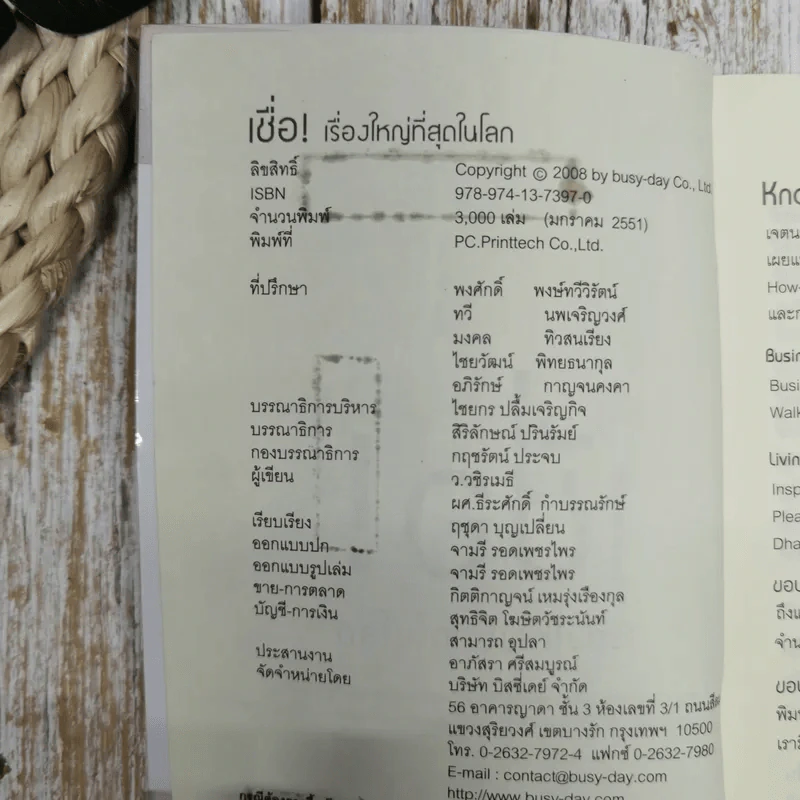 เชื่อ! เรื่องใหญ่ที่สุดในโลก
ลิขสิทธิ์ Copyright © 2008 by busy-day Co., Ltd
ISBN 978-974-13-7397-0
จำนวนพิมพ์ 3,000 เล่ม (มกราคม 2551)
พิมพ์ที่ PC.Printtech Co.,Ltd.
ที่ปรึกษา พงศักดิ์ พงษ์ทวีวิรัตน์
ทวี นพเจริญวงศ์
มงคล ทิวสนเรียง
ไชยวัฒน์ พิทยธนากุล
อภิรักษ์ กาญจนคงคา
บรรณาธิการบริหาร ไชยกร ปลื้มเจริญกิจ
บรรณาธิการ สิริลักษณ์ ปรินรัมย์
กองบรรณาธิการ กฤชรัตน์ ประจบ
ผู้เขียน ว.วชิรเมธี
ผศ.ธีระศักดิ์ กำบรรณรักษ์
เรียบเรียง ฤชุดา บุญเปลี่ยน
ออกแบบปก จามรี รอดเพชรไพร
ออกแบบรูปเล่ม จามรี รอดเพชรไพร
ขาย-การตลาด กิตติกาญจน์ เหมรุ่งเรืองกุล
บัญชี-การเงิน สุทธิจิต โฆษิตวัชระนันท์
สามารถ อุปลา
ประสานงาน อาภัสรา ศรีสมบูรณ์
จัดจำหน่ายโดย บริษัท บิสซี่เดย์ จำกัด
56 อาคารญาดา ชั้น 3 ห้องเลขที่ 3/1
แขวงสุริยวงศ์ เขตบางรัก กรุงเทพฯ 10500
โทร. 0-2632-7972-4 แฟกซ์ 0-2632-7980
E-mail : contact@busy-day.com
http://www.busy-day.com
Kno
เจตน
เผยแ
How-
และก
Busin
Busi
Walk
Livin
Insp
Plea
Dha
ขอบ
ถึงแ
จำน
ขอบ
พิมพ
เรามี